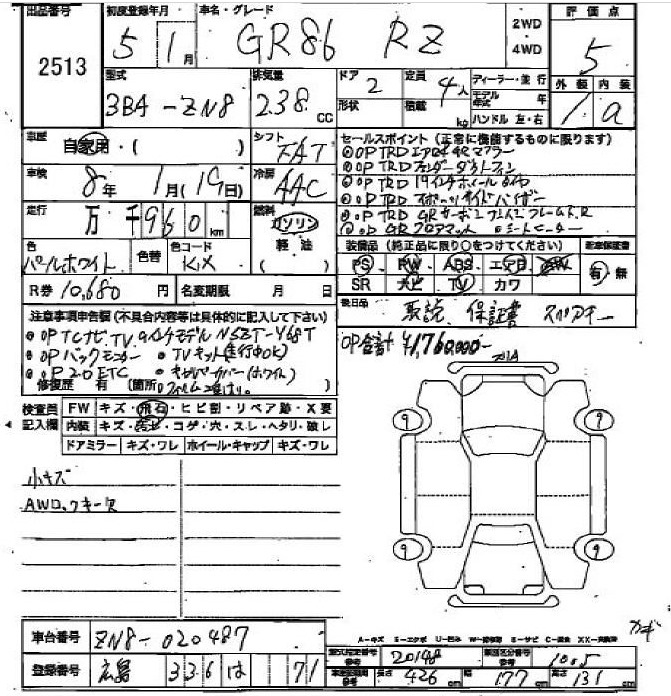 出品番号 初度登録年月 車名・グレード 2WD 4WD 評価点
2513 5年 1月 GR86 RZ 5
型式 排気量 ドア 定員 ディーラー・並行 外装 内装
3BA-ZN8 238 CC 2 4人 モデル年式 年 1 a
形状 積載 kg ハンドル 左・右
車歴 自家用・( ) シフト FAT
セールスポイント(正常に機能するものに限ります)
OP TRD エアロ 4Rマフラー
OP TRD フェンダーダクトフィン
OP TRD 19インチホイールタイヤ
OP TRD スポーツサイドバイザー
OP TRD GR
OP GRフロアマット シートヒーター
車検 8年 1月(19日) 冷房 AAC
走行 万 千 960 km 燃料 ガソリン 軽油 ( )
色 パールホワイト 色替 色コード KX
装備品(純正品に限り○をつけてください) 新車保証書
PS・PW・ABS・エアB・AW 有・無
SR ナビ・TV・カワ
R券 10,680円 名変期限 月 日
後日品 取説、保証書 スペアキー
注意事項申告欄(不具合内容等は具体的に記入して下さい)
OP合計 ¥1,760,000-
OP TCナビ、TV 9インチモデル NSZT-Y68T
OP バックモニター ・TVキット(走行中OK)
OP 2.0 ETC ・キャリパーカバー(ホワイト)
修復歴 有 (箇所 )
検査員記入欄 FW キズ・飛石・ヒビ割・リペア跡・X要
内装 キズ・コゲ・穴・スレ・ヘタリ・破レ
ドアミラー キズ・ワレ ホイール・キャップ キズ・ワレ
小キズ
9 9
9 9
A-キズ E-エクボ U-凹ミ W-補修跡 S-サビ C-腐食 XX-交換済
車台番号 ZN8-020487
型式指定番号 参考 20148 類別区分番号 参考 1005
登録番号 広島 336 は 71
長さ 426 cm 幅 177 cm 高さ 131 cm